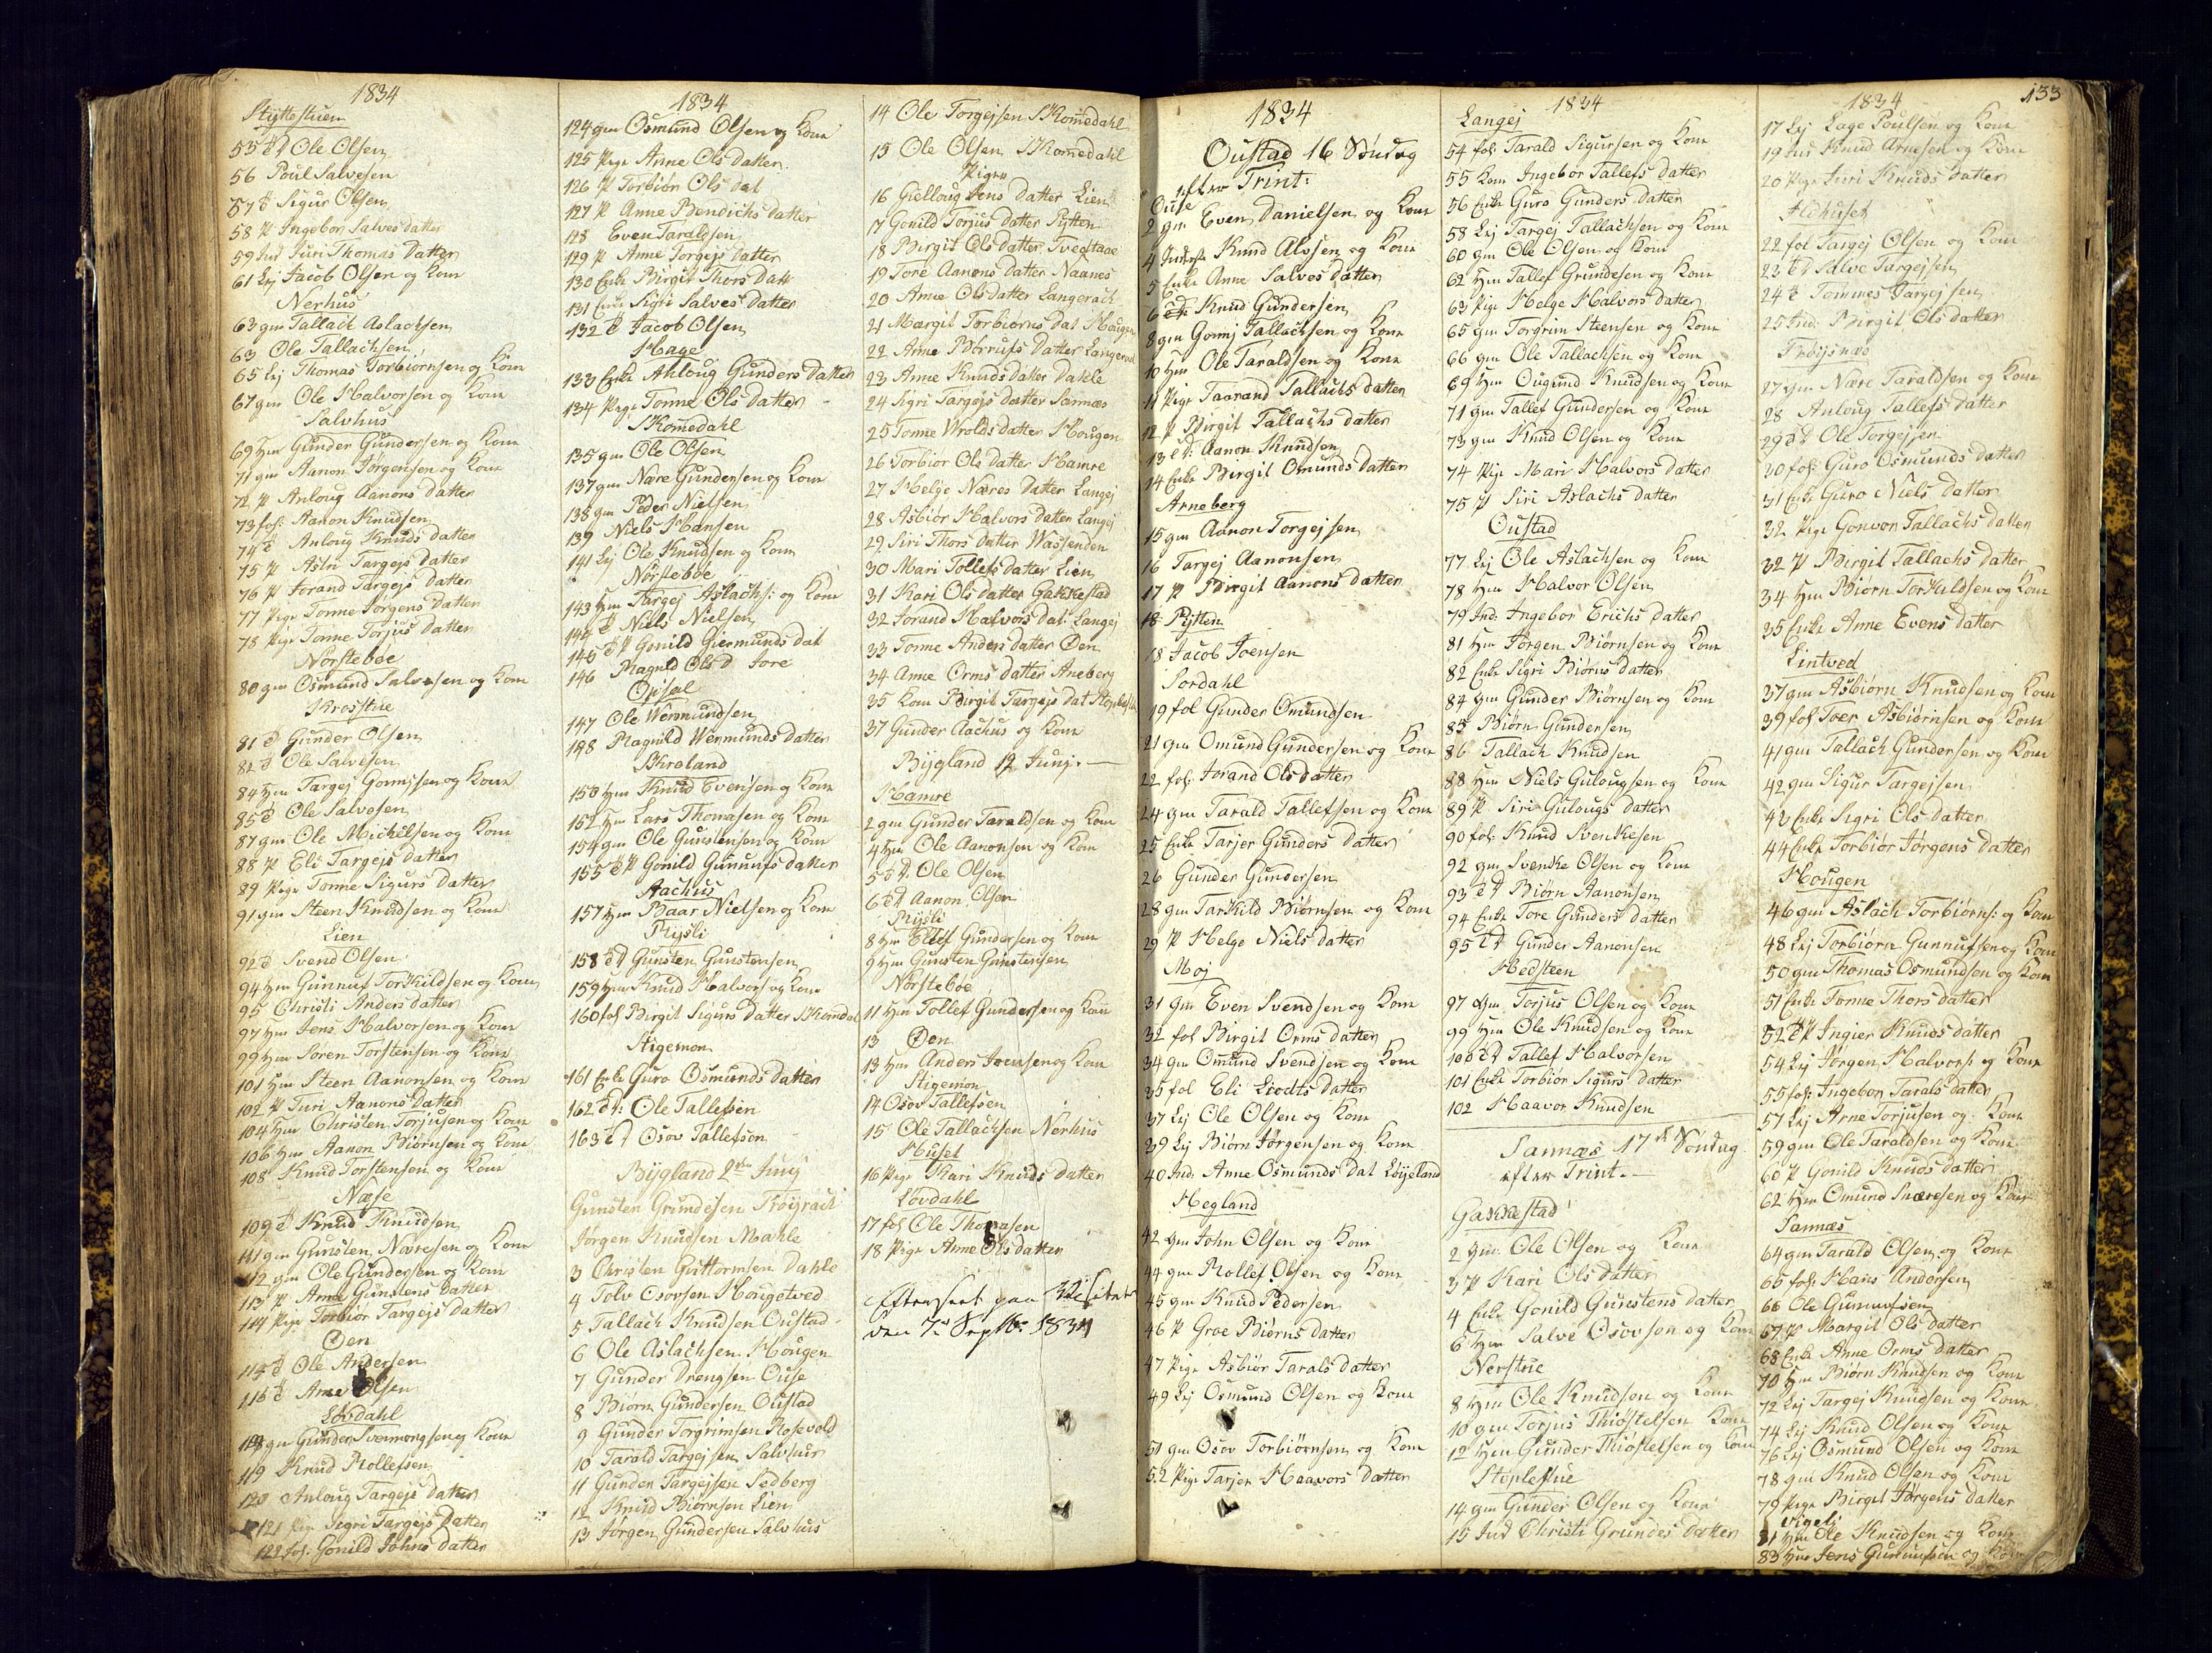 1834
Stÿttestuen
55 Ole Olsen
56 Poul Salvesen
57 Sigur Olsen
58 P Ingebor Salves datter
59 Ind Juri Thomas Datter
61 Lej Jacob Olsen og Kone
Nerhus
63 gm Tallach Aslachsen
63 Ole Tallachsen
65 Lej Thomas Torbiornsen og Kone
67 gm Ole Halvorsen og Kone
Salvhus
69 Hm Gunder Gundersen og Kone
71 gm Aanon Jörgensen og Kone
72 P Anloug Aanons datter
73 fos: Aanon Knudsen
74 Anloug Knuds datter
75 P Astri Targejs datter
76 P Jorand Targejs datter
77 Pige Tonne Jörgens Datter
78 Pige Tonne Torjus Datter
Norsteböe
80 gm Osmund Salvesen og Kone
Krosstue
81 Gunder Olsen
82 Ole Salvesen
84 Hm Targej Gonnisen og Kone
85 Ole Salvesen
87 gm Ole Michelsen og Kone
88 P Eli Targejs datter
89 Pige Tonne Sigurs Datter
91 gm Steen Knudsen og Kone
Lien
92 Svend Olsen
94 Hm Gunnuf Torkildsen og Kone
95 Christi Anders datter
97 Hm Jens Halvorsen og Kone
99 Hm Soren Torstensen og Kone
101 Hm Steen Aanonsen og Kone
102 P Turi Aanons Datter
104 Hm Christen Torjusen og Kone
106 Hm Aanon Biörnsen og Kone
108 Knud Torstensen og Kone
Næse
109 Knud Knudsen
111 gm Gunsten Næresen og Kone
112 gm Ole Gundersen og Kone
113 P Anne Gunstens Datter
114 Pige Torbiör Targejs datter
Öen
115 Ole Andersen
116 Arne Olsen
Lövdahl
118 gm Gunder og Kone
119 Knud Rollefsen
120 Anloug Targejs datter
121 Pige Sigri Targejs Datter
122 fos: Gonild Johns datter
1834
124 gm Osmund Olsen og Kone
125 Pige Anne Ols datter
126 P Torbiör Ols dat
127 P Anne Bendichs datter
128 Even Taraldsen
129 P Anne Torgejs Datter
130 Enke Birgit Thors Datt
131 Enke Sigri Salves Datter
132 Jacob Olsen
Hage
133 Enke Ahloug Gunders Datter
134 Pige Tonne Ols datter
Skomedahl
135 gm Ole Olsen
137 gm Nære Gundersen og Kone
138 gm Peder Nielsen
139 Niels Hansen
141 Lej Ole Knudsen og Kone
Norsteböe
143 Hm Targej Aslachs: og Kone
144 Niels Nielsen
145 P Gonild Giermunds dat
146 Ragnild Ols d Jore
Opisal
147 Ole Wermundsen
148 Ragnild Wermunds datter
Skreland
150 Hm Knud Evensen og Kone
152 Hm Lars Thomasen og Kone
154 gm Ole Gunstensen og Kone
155 P Gonild Gunnufs datter
Aachus
157 Hm Baar Nielsen og Kone
Rysli
158 Gunsten Gunstensen
159 Hm Knud Halvors og Kone
160 fos Birgit Sigurs Datter Skomdal
Stigemon
161 Enke Guro Osmunds Datter
162 Ole Tallefsen
163 Osov Tallefsen
Bijgland 2den Junij
Gunsten Grundesen Tröijrach
Jörgen Knudsen Mahle
3 Christen Guttormsen Dahle
4 Tolv Osovsen Hougetved
5 Tallach Knudsen Oustad
6 Ole Aslachsen Hougen
7 Gunder Drengsen Ouse
8 Biörn Gundersen Oustad
9 Gunder Torgrimsen Rosevold
10 Tarald Targejsen Salvhus
11 Gunder Targejsen Sedberg
12 Knud Biörnsen Lien
13 Jörgen Gundersen Salvhus
14 Ole Torgejsen Skomedahl
15 Ole Olsen Skomedahl
Piger
16 Gielloug Jens Datter Lien
17 Gonild Torjus Datter Pytten
18 Birgit Ols Datter Tveitaae
19 Tore Aanons Datter Naanes
20 Anne Ols datter Langerach
21 Margit Torbiörns dat Hougen
22 Anne Börrufs Datter Langerach
23 Anne Knuds datter Dahle
24 Sigri Targejs datter Sannæs
25 Tonne Wrolds datter Hougen
26 Torbiör Ols datter Hamre
27 Helge Næres Datter Langej
28 Asbiör Halvors Datter Langej
29 Siri Thors Datter Wassenden
30 Mari Tollefs datter Lien
31 Kari Ols datter Gakkestad
32 Jorand Halvors dat Langej
33 Tonne Anders datter Öen
34 Anne Orms datter Aneberg
35 Kone Birgit Targejs Dat
37 Gunder Aachus og Kone
Bijgland 12 Junij.
Hamre
2 gm Gunder Taraldsen og Kone
4 Hm Ole Aanonsen og Kone
5 Ole Olsen
6 Aanon Olsen
Rysli
8 Hm Ellef Gundersen og Kone
9 Hm Gunsten Gunstensen
Norsteboe
11 Hm Tollef Gundersen og Kone
13 Öen
13 Hm Anders Joensen og Kone
Stigemon
14 Osov Tallefsen
15 Ole Tallachsen Nerhus
Huset
16 Pige Kari Knuds datter
Lövdahl
17 fos Ole Thomasen
18 Pige Anne Ols datter
Efterseet paa Visitats
den 7de Septbr 1834
1834
Oustad 16 Söndag
efter Trint:
Ouse
2 gm Even Danielsen og Kone
4 Inderst Knud Alvsen og Kone
5 Enke Anne Salves datter
6 Knud Gundersen
8 gm Gonnj Tallachsen og Kone
10 Hm Ole Taraldsen og Kone
11 Pige Taarand Tallachs datter
12 P Birgit Tallachs datter
13 Aanon Knudsen
14 Enke Birgit Omunds Datter
Arneberg
15 gm Aanon Torgejsen
16 Targej Aanonsen
17 P Birgit Aanons datter
18 Pijtten
18 Jacob Joensen
Sordahl
19 fol Gunder Omundsen
21 gm Omund Gundersen og Kone
22 fos. Jorand Ols datter
24 gm Tarald Tallefsen og Kone
25 Enke Tarjer Gunders datter
26 Gunder Gundersen
28 gm Tarkild Biörnsen og Kone
29 P Helge Niels datter
Moj
31 gm Even Svendsen og Kone
32 fol Birgit Orms datter
34 gm Omund Svendsen og Kone
35 fol Eli Liedts datter
37 Lej Ole Olsen og Kone
39 Lej Biörn Jörgensen og Kone
40 Ind. Anne Osmunds Dat Löijeland
Hegland
42 gm John Olsen og Kone
44 gm Rollef Olsen og Kone
45 gm Knud Pedersen
46 P Groe Biörns datter
47 Pige Asbiör Tarals datter
49 Lej Osmund Olsen og Kone
51 gm Osov Torbiörnsen og Kone
52 Pige Tarjer Haavors datter
1834
Langej
54 fol Tarald Sigursen og Kone
55 Kone Ingebor Tallefs datter
56 Enke Guro Gunders datter
58 Lej Targej Tallachsen og Kone
60 gm Ole Olsen og Kone
62 Hm Tallef Grundesen og Kone
63 Pige Helge Halvors datter
65 gm Torgrim Steensen og Kone
66 gm Ole Tallachsen og Kone
69 Hm Ougund Knudsen og Kone
71 gm Tallef Gundersen og Kone
73 gm Knud Olsen og Kone
74 Pige Mari Halvors datter
75 P Siri Aslachs datter
Oustad
77 Lej Ole Aslachsen og Kone
78 Hm Halvor Olsen
79 Ind. Ingebor Erichs datter
81 Hm Jörgen Biörnsen og Kone
82 Enke Sigri Biörns datter
84 gm Gunder Biörnsen og Kone
85 Biörn Gundersen
86 Tallach Knudsen
88 Hm Niels Gulougsen og Kone
89 P Siri Gulougs datter
90 fol. Knud Svenkesen
92 gm Svenke Olsen og Kone
93 Biörn Aanonsen
94 Enke Tore Gunders datter
95 Gunder Aanonsen
Hedsteen
97 gm Torjus Olsen og Kone
99 Hm Ole Knudsen og Kone
100 Tallef Halvorsen
101 Enke Torbiör Sigurs datter
102 Haavor Knudsen
Sannæs 17de Söndag
efter Trint.
Gakkestad
2 gm. Ole Olsen og Kone
3 P Kari Ols datter
4 Enke Gonild Gunstens datter
6 Hm Salve Osovsen og Kone
Nerstue
8 Hm Ole Knudsen og Kone
10 gm Torjus Thiöstelsen Kone
12 Hm Gunder Thiöstelsen og Kone
Stoplestue
14 gm Gunder Olsen og Kone
15 Ind Christi Grundes datter
1834
133
17 Lej Lage Poulsen og Kone
19 Ind Knud Arnesen og Kone
20 Pige Juri Knuds datter
Ildhuset
22 fol Targej Olsen og Kone
23 Salve Targejsen
24 Tommes Targejsen
25 Ind. Birgit Ols datter
Tröijsnæs
27 gm Nære Taraldsen og Kone
28 Anloug Tallefs datter
29 Ole Torgejsen
30 fol. Guro Osmunds datter
31 Enke Guro Niels datter
32 Pige Gonvor Tallachs datter
32 P Birgit Tallachs datter
34 Hm Biörn Torkildsen og Kone
35 Enke Anne Evens datter
Lintved
37 gm Asbiörn Knudsen og Kone
39 fol Toer Asbiörnsen og Kone
41 gm Tallach Gundersen og Kone
42 gm Sigur Targejsen
43 Enke Sigri Ols datter
44 Enke Torbiör Jörgens datter
Hougen
46 gm Aslach Torbiörns: og Kone
48 Lej Torbiörn Gunnufsen og Kone
50 gm Thomas Osmundsen og Kone
51 Enke Tonne Thors datter
52 P Ingier Knuds datter
54 Lej Jörgen Halvors: og Kone
55 fol: Ingebor Tarals datter
57 Lej Arne Torjusen og Kone
59 gm Ole Taraldsen og Kone
60 P Gonild Knuds datter
62 Hm Omund Sneresen og Kone
Sannæs
64 gm Tarald Olsen og Kone
65 fol: Hans Andersen
66 Ole Gunnufsen
67 P Margit Ols datter
68 Enke Anne Orms datter
70 Hm Biörn Knudsen og Kone
72 Lej Targej Knudsen og Kone
74 Lej Knud Olsen og Kone
76 Lej Osmund Olsen og Kone
78 gm Knud Olsen og Kone
79 Pige Birgit Jörgens datter
Vigeli
81 Hm Ole Knudsen og Kone
83 Hm Jens Gunnufsen og Kone